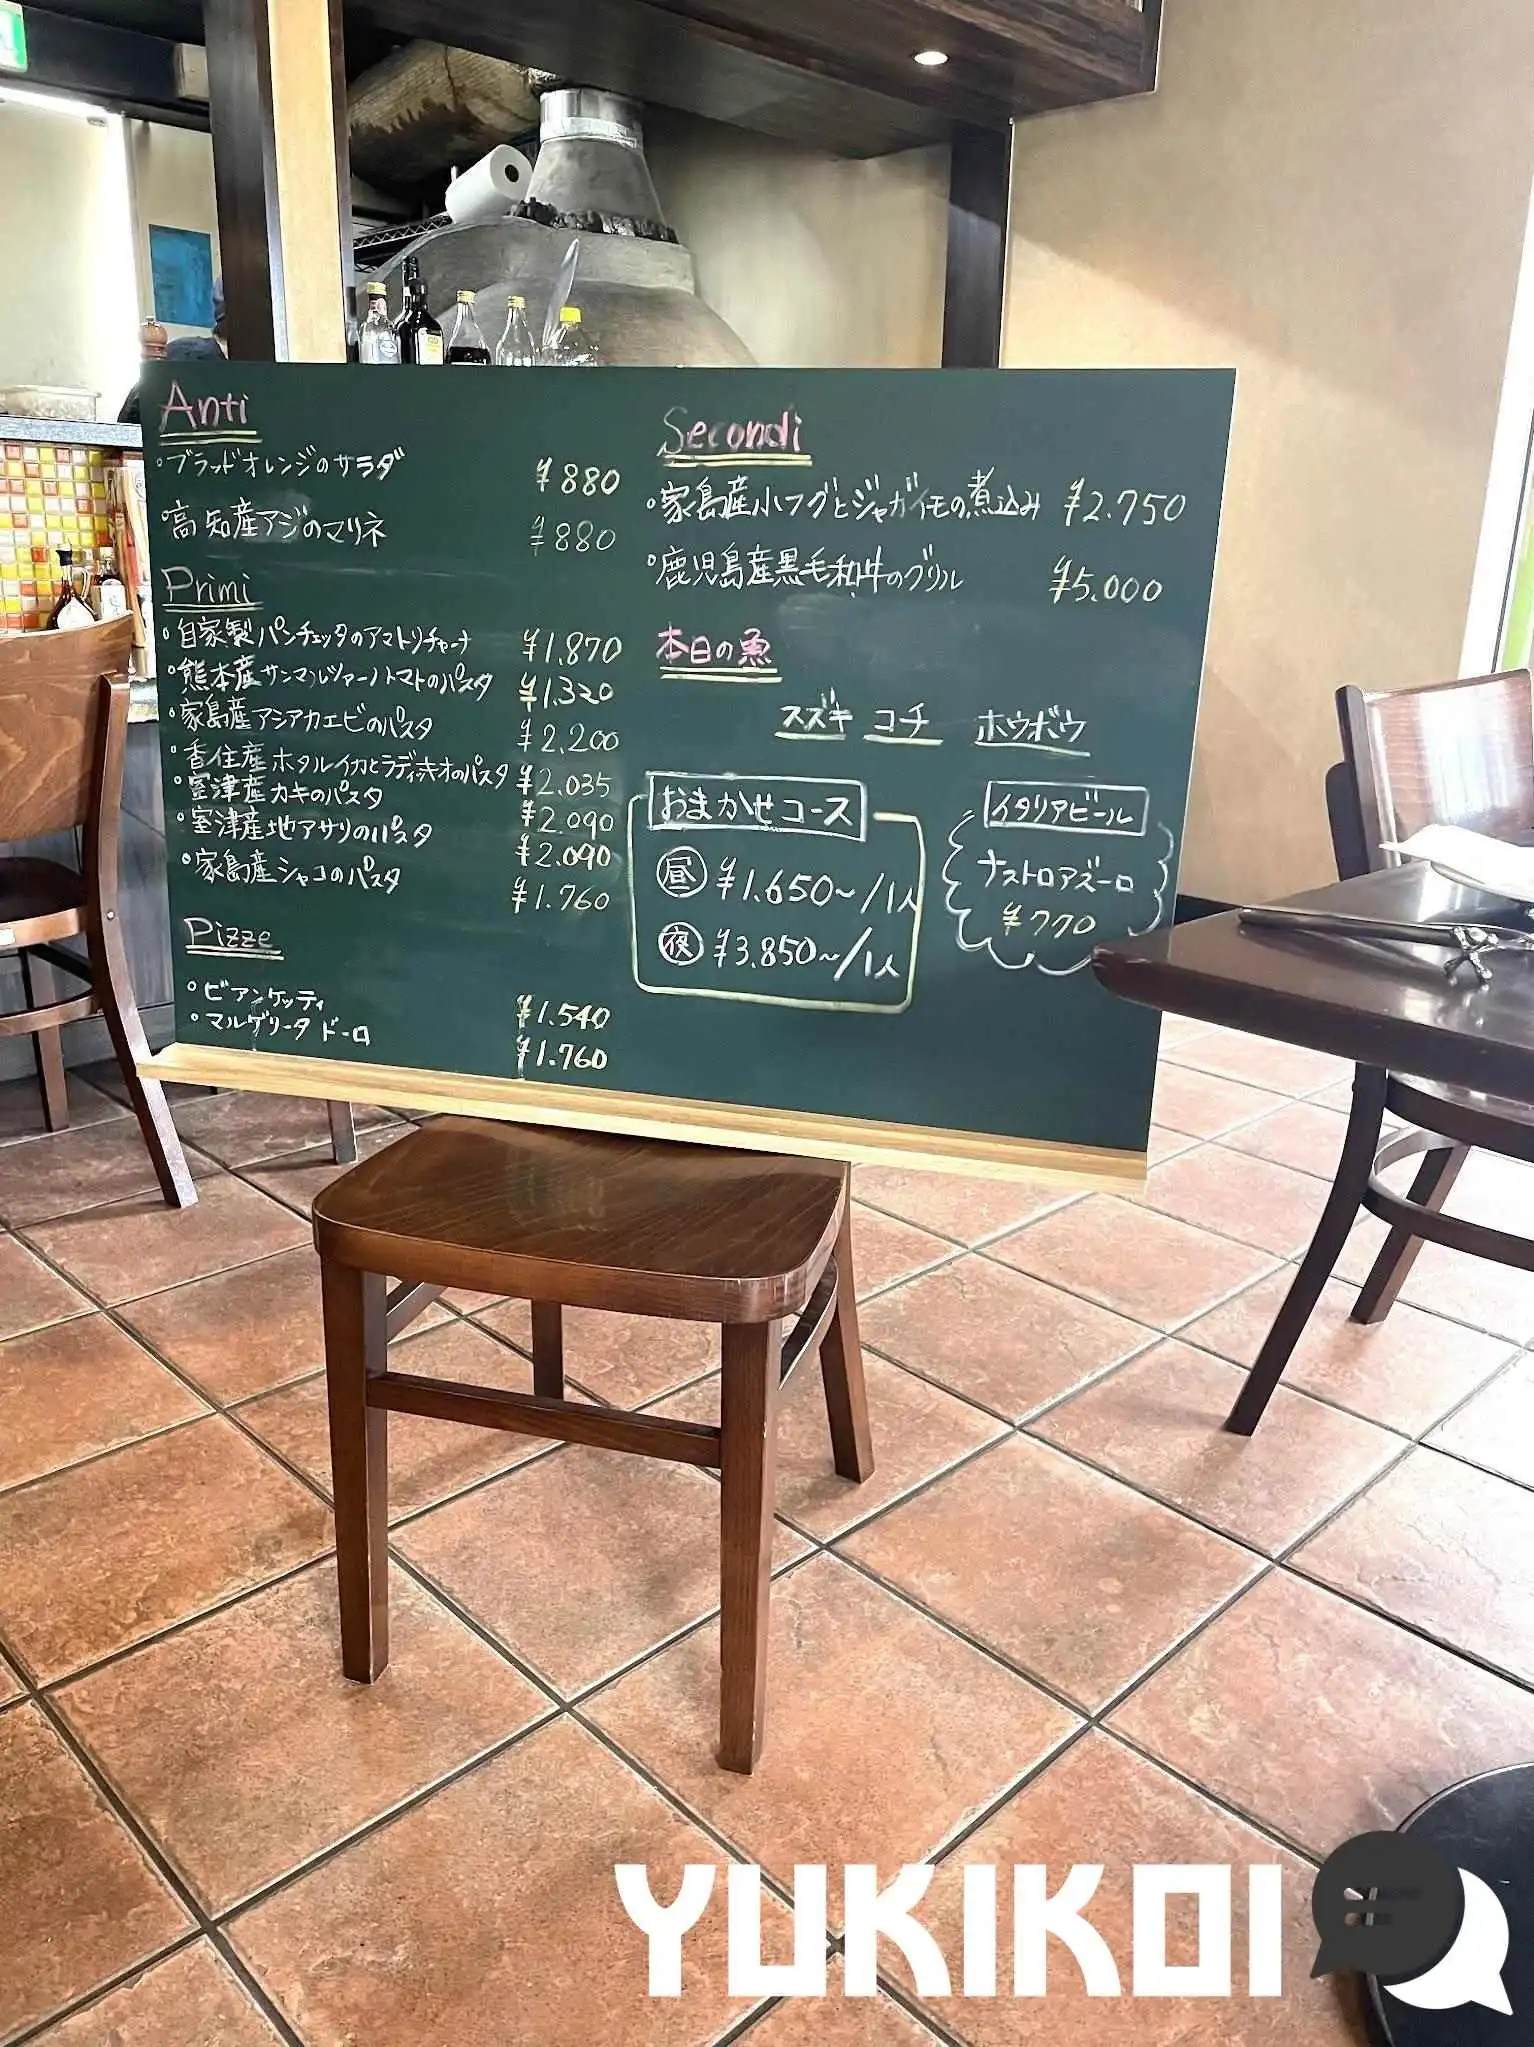 Anti
・ブラッドオレンジのサラダ ¥880
・高知産アジのマリネ ¥880
Primi
・自家製パンチェッタのアマトリチャーナ ¥1.870
・熊本産サンマルツァーノトマトのパスタ ¥1.320
・家島産アシアカエビのパスタ ¥2.200
・香住産ホタルイカとラディッキオのパスタ ¥2.035
・室津産カキのパスタ ¥2.090
・室津産地アサリのパスタ ¥2.090
・家島産シャコのパスタ ¥1.760
Pizze
・ビアンケッティ ¥1.540
・マルゲリータ ドーロ ¥1.760
Secondi
・家島産小フグとジャガイモの煮込み ¥2.750
・鹿児島産黒毛和牛のグリル ¥5.000
本日の魚
スズキ コチ ホウボウ
おまかせコース
昼 ¥1.650~/1人
夜 ¥3.850~/1人
イタリアビール
ナストロアズーロ
¥770
YUKIKOI